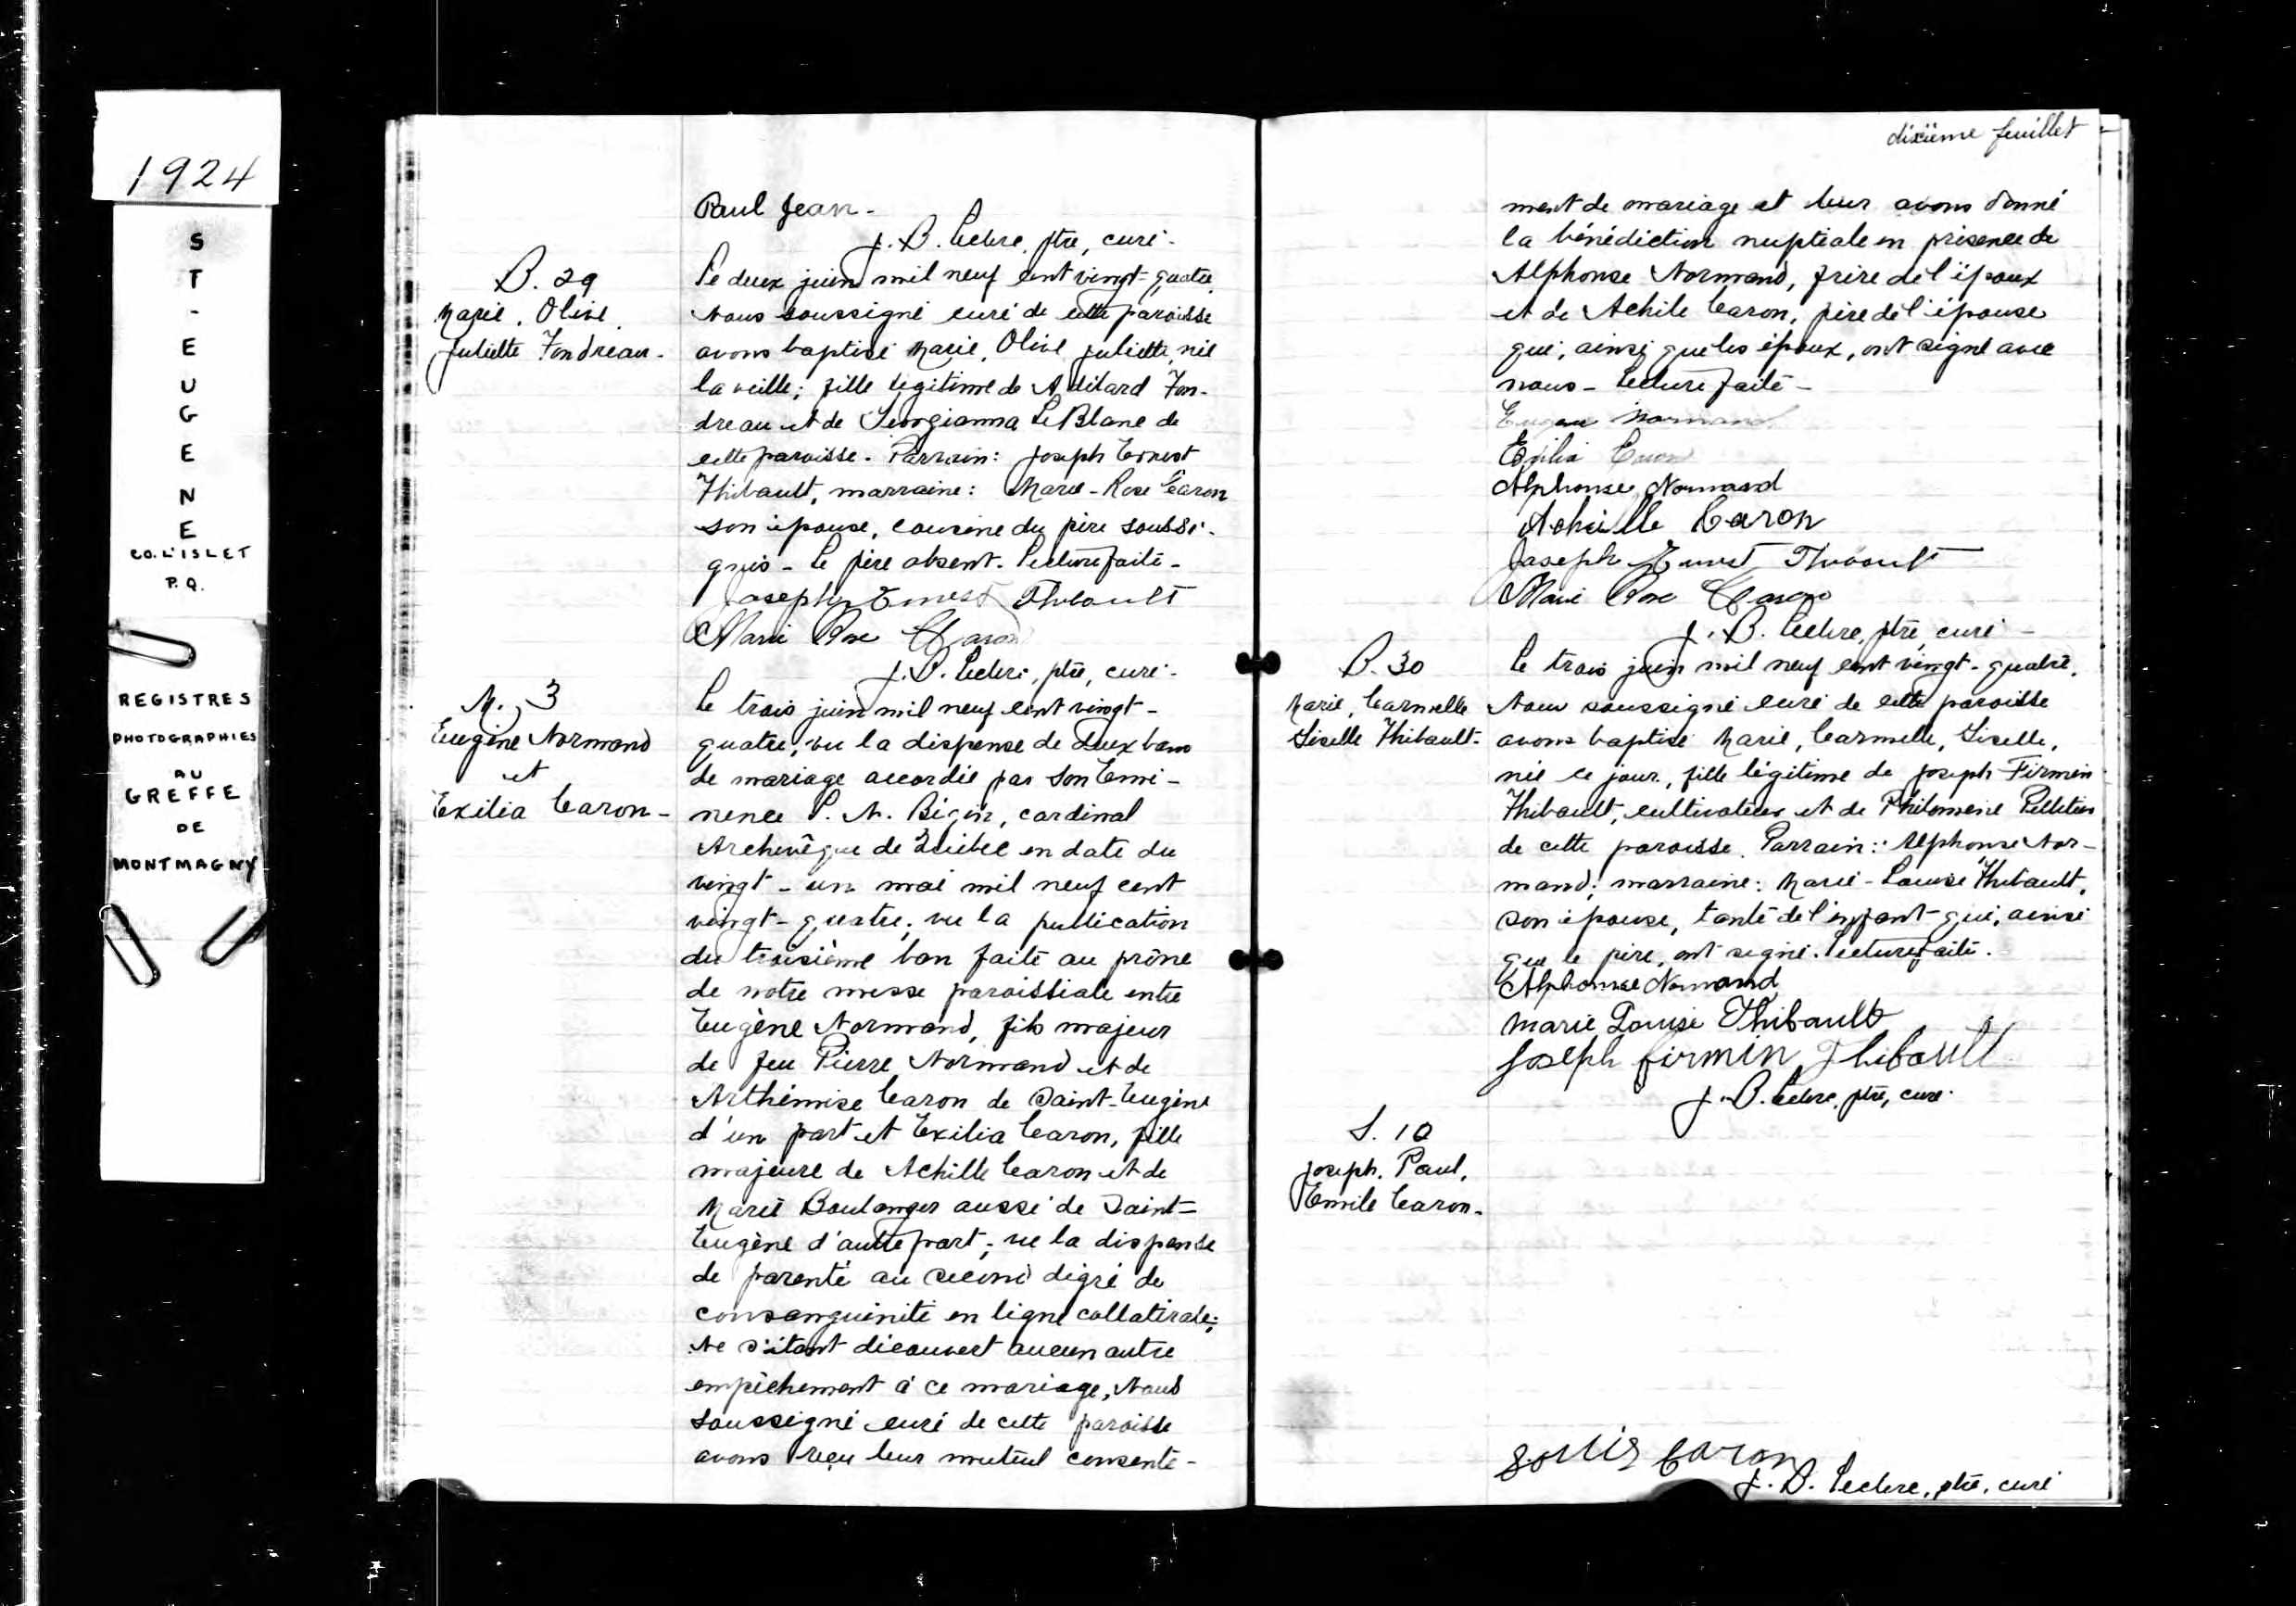 1924
S
T
-
E
U
G
E
N
E
CO. L'ISLET
P.Q.
REGISTRES
PHOTOGRAPHIES
AU
GREFFE
DE
MONTMAGNY
Paul Jean-
J. B. Leclerc, ptre, curé-
B. 29
Marie, Olive,
Juliette Fondreau-
Le deux juin mil neuf cent vingt-quatre,
Nous soussigné curé de cette paroisse
avons baptisé Marie, Olive, Juliette, née
la veille; fille légitime de Adélard Fon-
dreau et de Georgianna LeBlanc de
cette paroisse. Parrain: Joseph Ernest
Thibault, marraine: Marie-Rose Caron
son épouse, cousine du père soussi-
gnés - Le père absent. Lecture faite -
Joseph Ernest Thibault
Marie Rose Caron
J. B. Leclerc, ptre, curé-
M. 3
Eugène Normand
et
Exilia Caron-
Le trois juin mil neuf cent vingt-
quatre, vu la dispense de deux bans
de mariage accordée par Son Emi-
nence L. N. Bégin, cardinal
Archevêque de Québec en date du
vingt-un mai mil neuf cent
vingt-quatre; vu la publication
du troisième ban faite au prône
de notre messe paroissiale entre
Eugène Normand, fils majeur
de feu Pierre Normand et de
Arthémise Caron de Saint-Eugène
d'un part et Exilia Caron, fille
majeure de Achille Caron et de
Marie Boulanger aussi de Saint-
Eugène d'autre part; vu la dispense
de parenté au second degré de
consanguinité en ligne collatérale;
Ne s'étant découvert aucun autre
empêchement à ce mariage, Nous
soussigné curé de cette paroisse
avons reçu leur mutuel consente-
dixième feuillet
ment de mariage et leur avons donné
la bénédiction nuptiale en présence de
Alphonse Normand, frère de l'époux
et de Achile Caron, père de l'épouse
qui, ainsi que les époux, ont signé avec
nous - Lecture faite -
Eugene Normand
Exilia Caron
Alphonse Normand
Achille Caron
Joseph Ernest Thibault
Marie Rose Caron
J. B. Leclerc, ptre, curé -
B. 30
Marie, Carmelle
Giselle Thibault-
Le trois juin mil neuf cent vingt-quatre,
Nous soussigné curé de cette paroisse
avons baptisé Marie, Carmelle, Giselle,
née ce jour, fille légitime de Joseph Firmin
Thibault, cultivateur et de Philomène Pelletier
de cette paroisse. Parrain: Alphonse Nor-
mand; marraine: Marie-Louise Thibault,
son épouse, tante de l'enfant qui, ainsi
que le père, ont signé. Lecture faite.
Alphonse Normand
Marie Louise Thibault
Joseph firmin Thibault
J. B. Leclerc, ptre, curé-
S. 10
Joseph, Paul,
Emile Caron-
Caron
J. B. Leclerc, ptre, curé